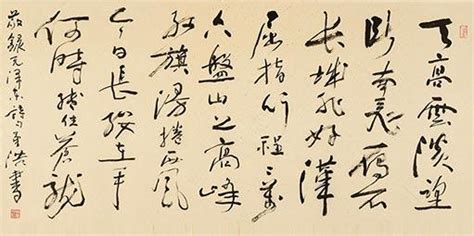 天高雲淡望
断南飛雁不到
长城非好漢
屈指行程二萬
六盤山上高峰
红旗漫捲西風
今日長纓在手
何時縛住蒼龍
敬録毛澤东詞 洪書